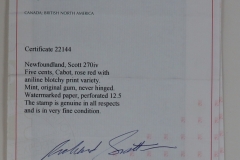 CANADA/ BRITISH NORTH AMERICA
Certificate 22144
Newfoundland, Scott 270iv
Five cents, Cabot, rose red with
aniline blotchy print variety.
Mint, original gum, never hinged.
Watermarked paper, perforated 12.5
The stamp is genuine in all respects
and is in very fine condition.
Richard